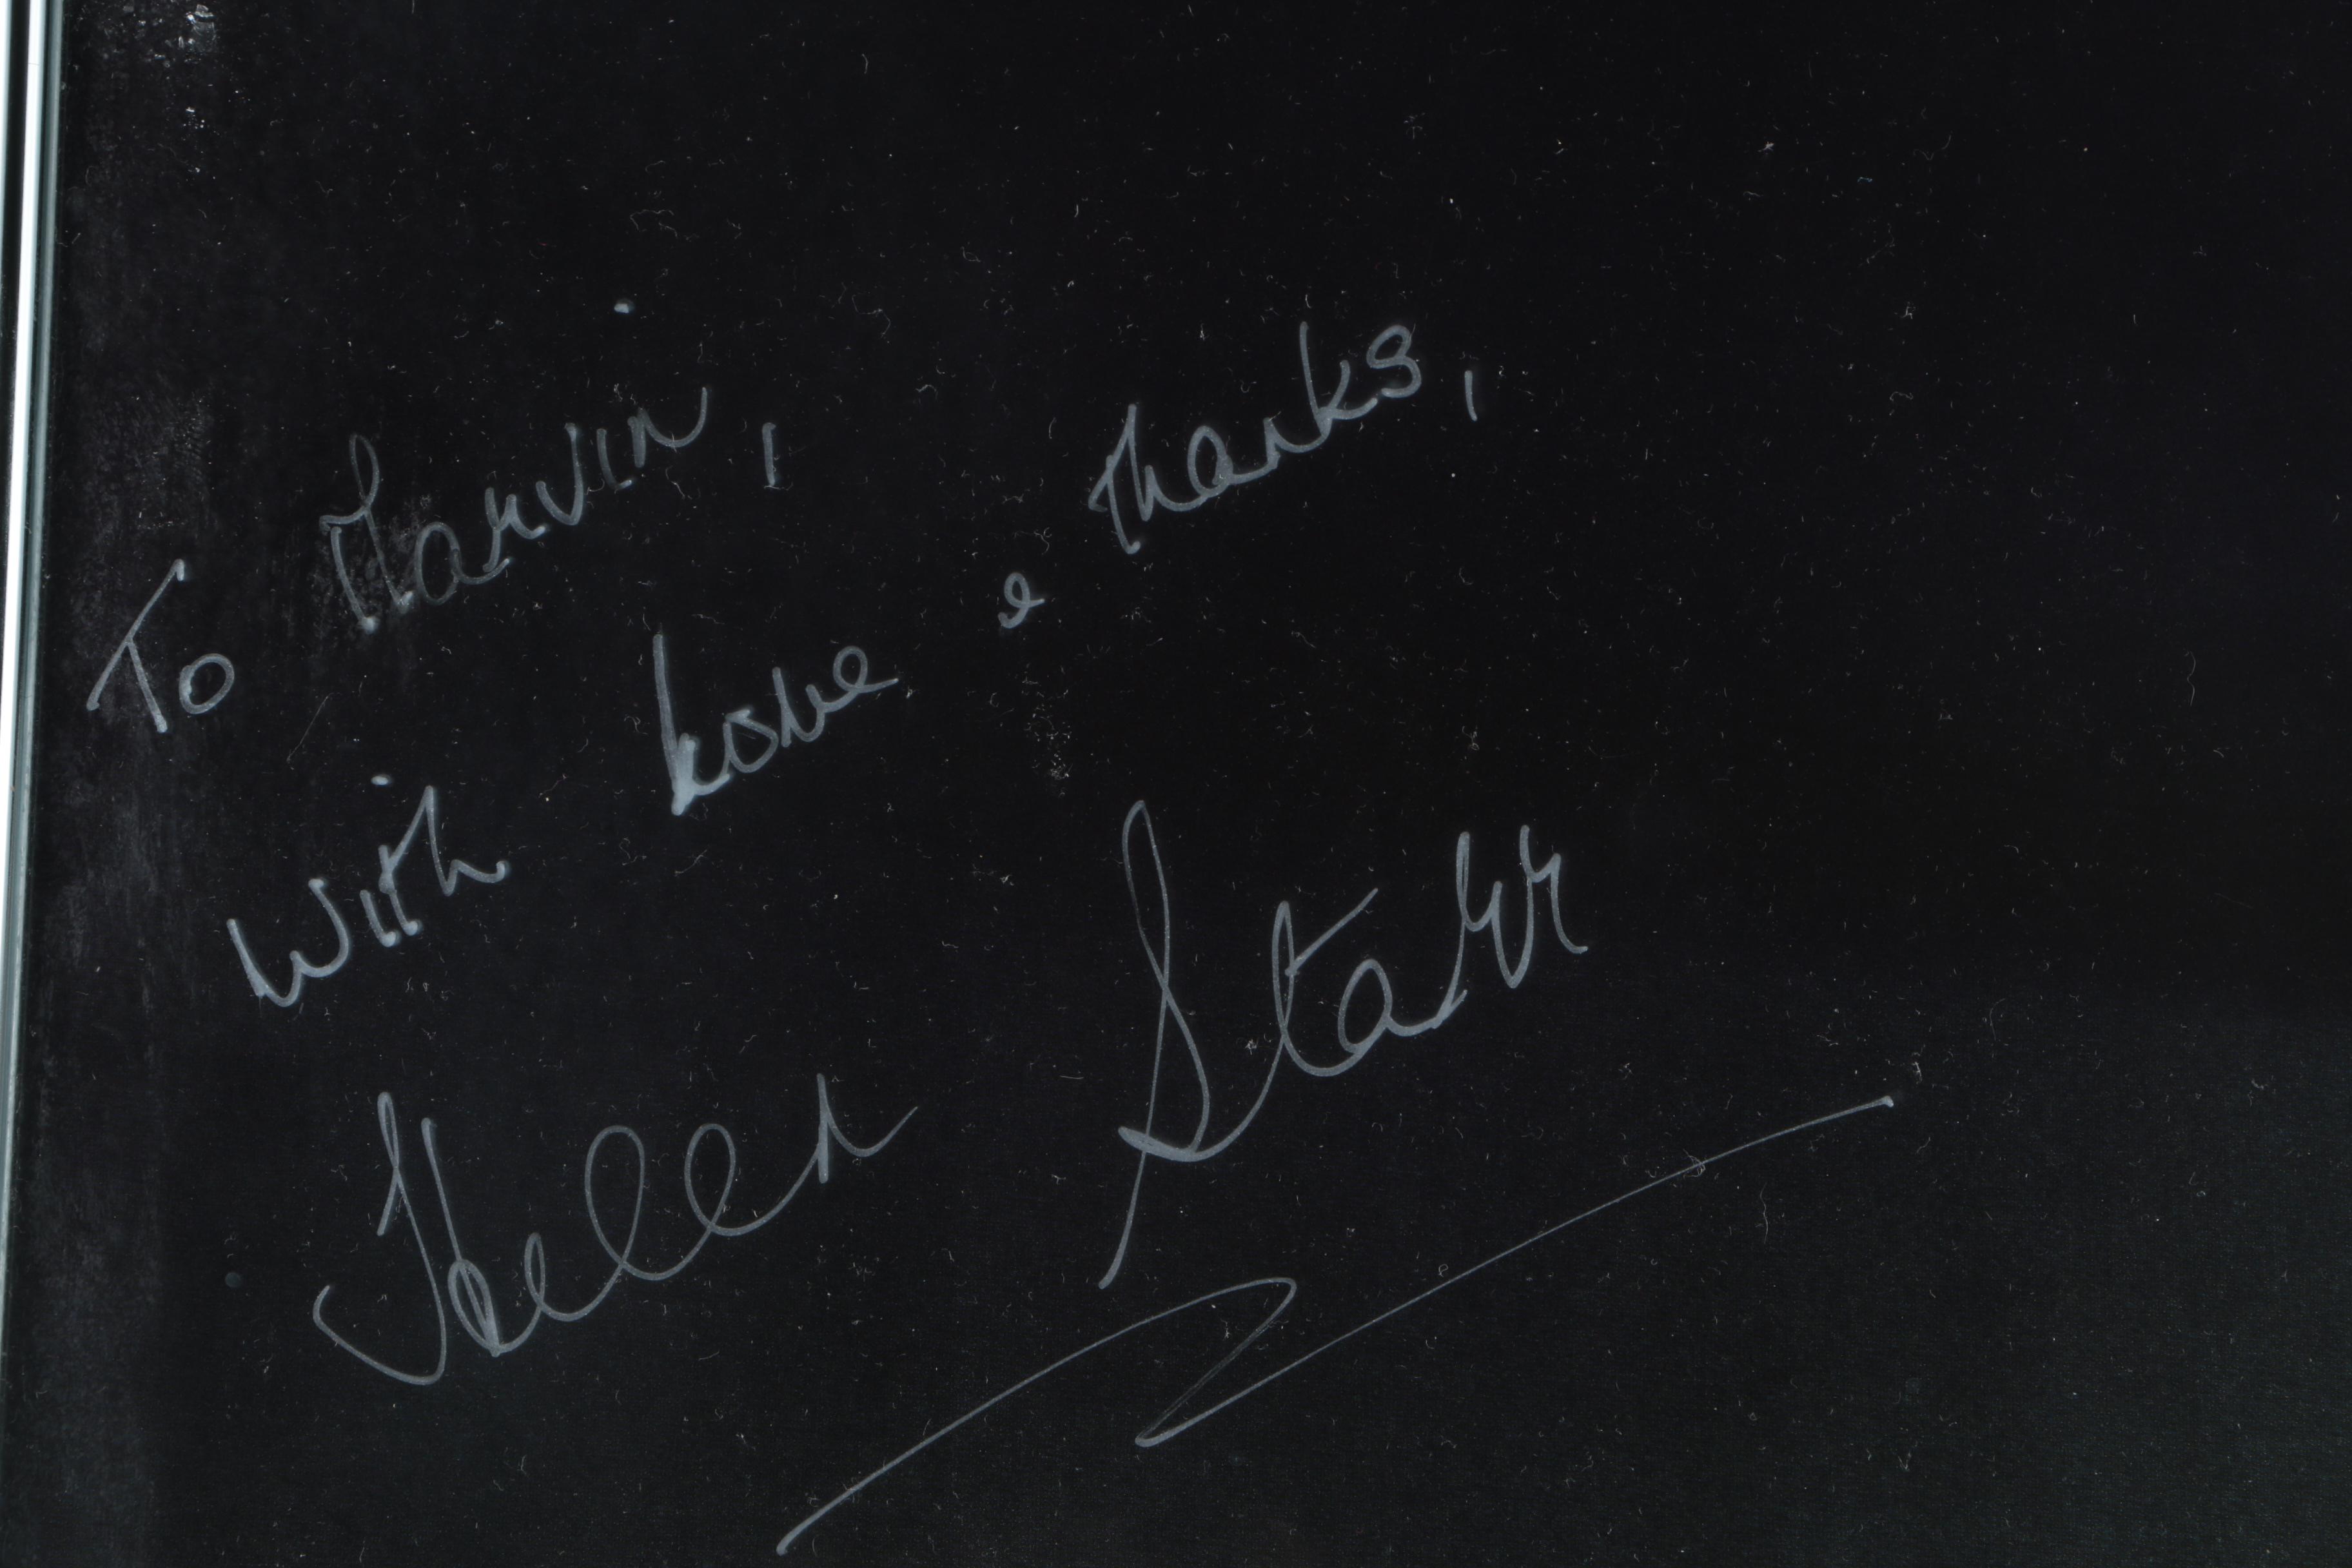 To Marvin,
With love & thanks,
Helen Starr